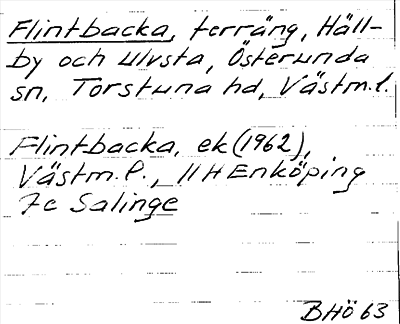 Flintbacka, terräng, Häll-
by och Ulvsta, Österunda
sn, Torstuna hd, Västm.l.
Flintbacka, ek (1962),
Västm.l., 11 H Enköping
7c Salinge
BHÖ 63